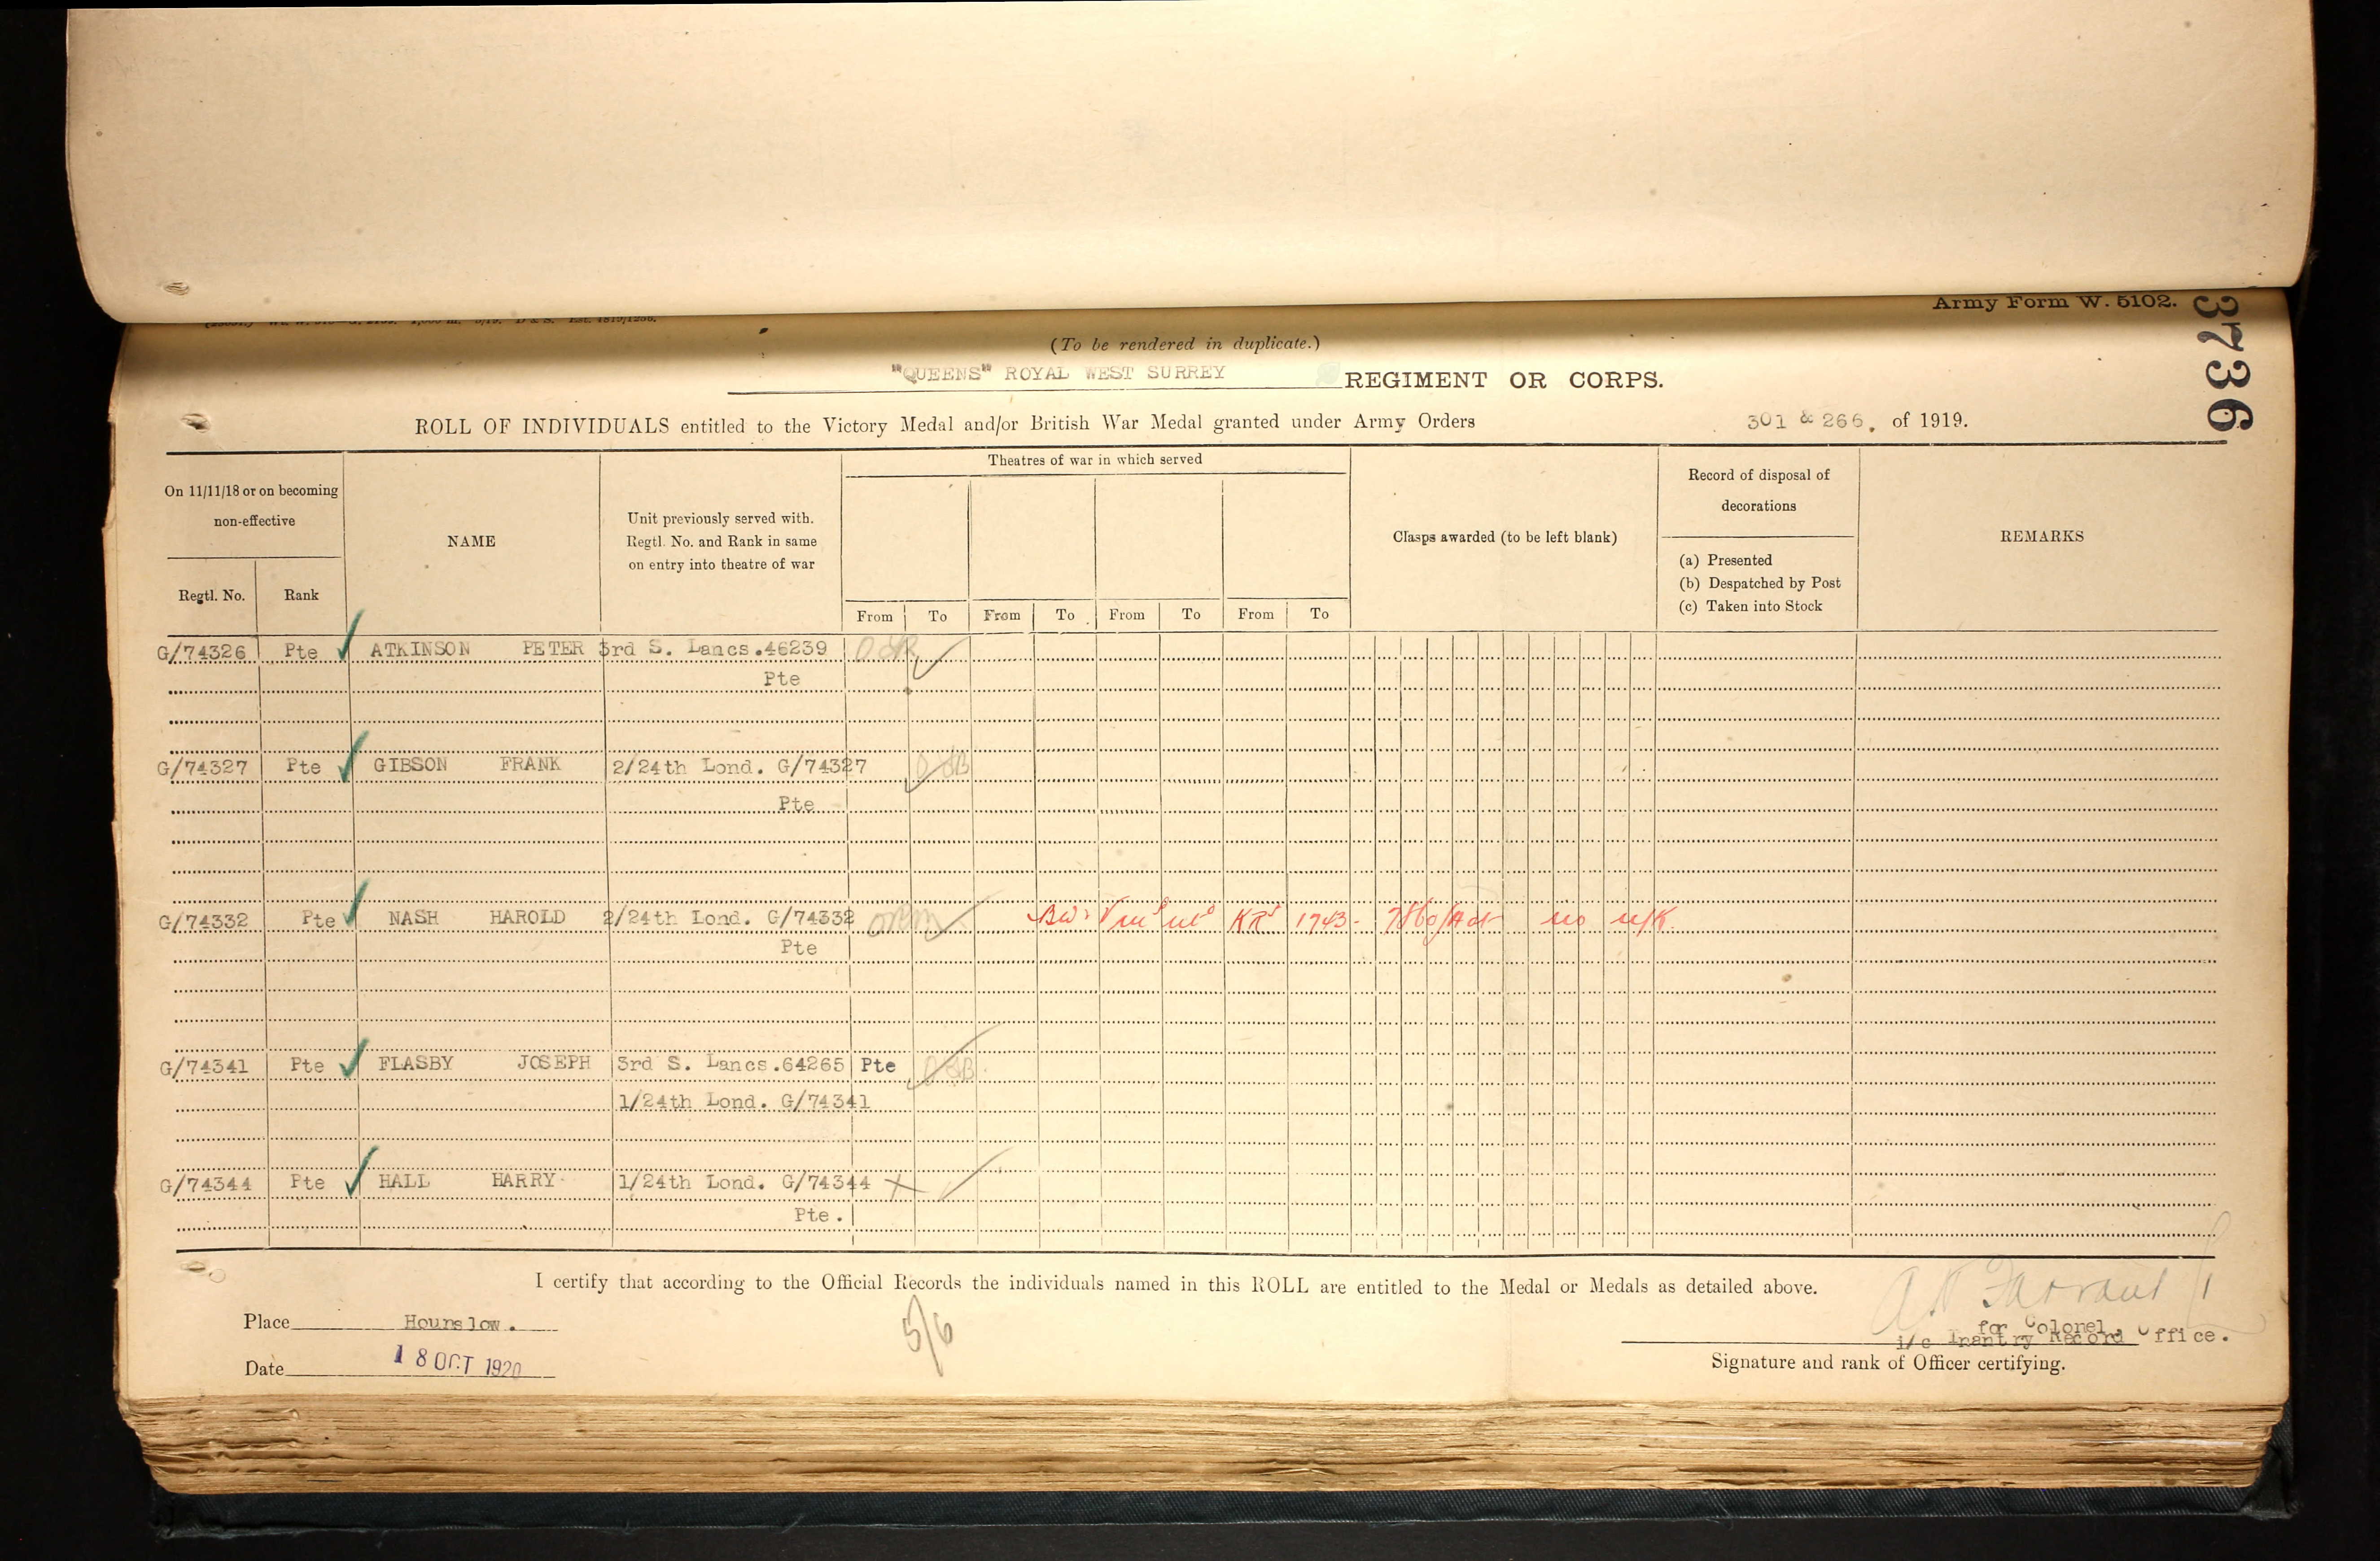 Army Form W. 5102.
3736
(To be rendered in duplicate.)
"QUEENS" ROYAL WEST SURREY REGIMENT OR CORPS.
ROLL OF INDIVIDUALS entitled to the Victory Medal and/or British War Medal granted under Army Orders 301 & 266. of 1919.
On 11/11/18 or on becoming non-effective
Regtl. No.
Rank
NAME
Unit previously served with.
Regtl. No. and Rank in same
on entry into theatre of war
Theatres of war in which served
From To From To From To From To
Clasps awarded (to be left blank)
Record of disposal of
decorations
(a) Presented
(b) Despatched by Post
(c) Taken into Stock
REMARKS
G/74326 Pte ATKINSON PETER 3rd S. Lancs.46239
Pte
G/74327 Pte GIBSON FRANK 2/24th Lond. G/74327
Pte
G/74332 Pte NASH HAROLD 2/24th Lond. G/74332 KRs 1743
Pte
G/74341 Pte FLASBY JOSEPH 3rd S. Lancs.64265 Pte
1/24th Lond. G/74341
G/74344 Pte HALL HARRY 1/24th Lond. G/74344 X
Pte.
I certify that according to the Official Records the individuals named in this ROLL are entitled to the Medal or Medals as detailed above.
Place Hounslow.
Date 18 OCT 1920
5/6
for Colonel
i/c Infantry Record Office.
Signature and rank of Officer certifying.